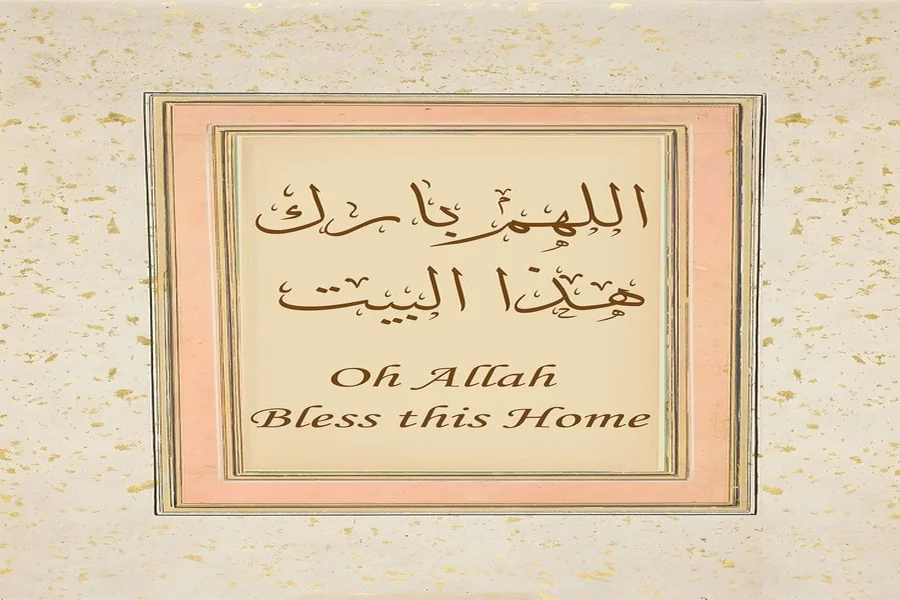 اللهم بارك
هذا البيت
Oh Allah
Bless this Home